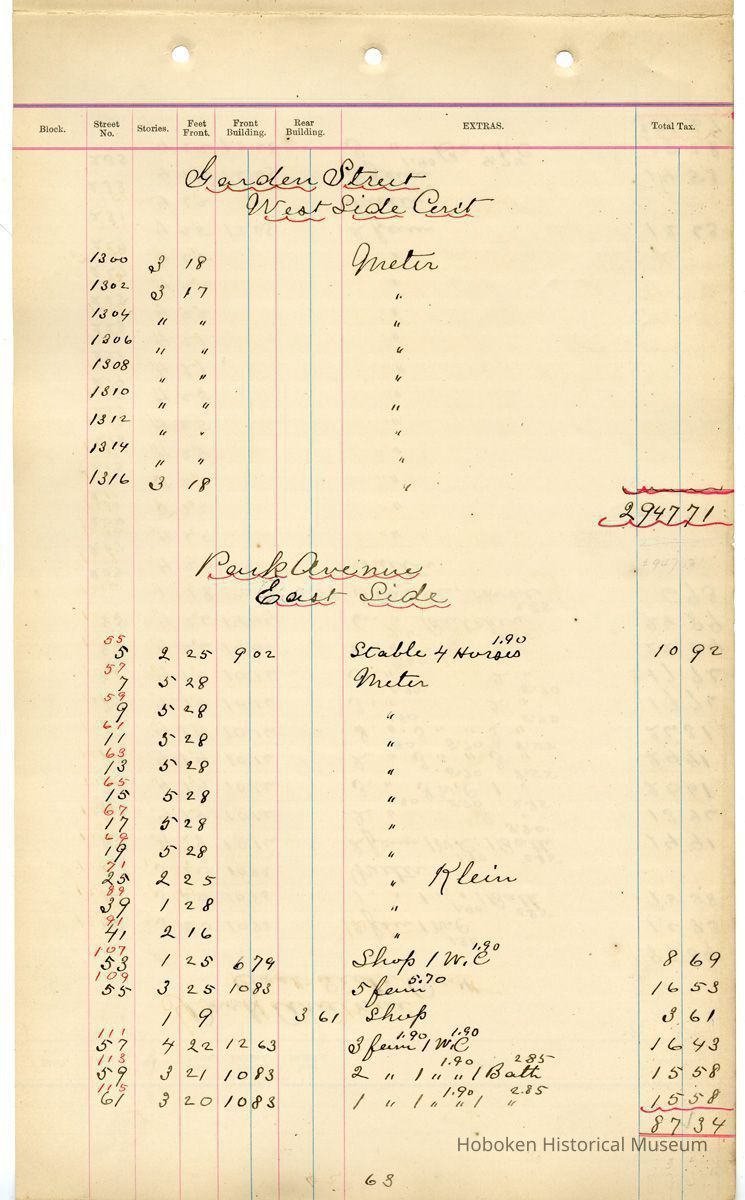 Block. Street No. Stories. Feet Front. Front Building. Rear Building. EXTRAS. Total Tax.
Garden Street
West Side Cont
1300 3 18 Meter
1302 3 17 "
1304 " " "
1306 " " "
1308 " " "
1310 " " "
1312 " " "
1314 " " "
1316 3 18 "
2947 71
Park Avenue
East Side
55
5 2 25 9 02 Stable 4 Horses 1.90 10 92
57
7 5 28 Meter
59
9 5 28 "
61
11 5 28 "
63
13 5 28 "
65
15 5 28 "
67
17 5 28 "
69
19 5 28 "
71
25 2 25 " Klein
89
39 1 28 "
91
41 2 16 "
107
53 1 25 6 79 Shop 1 W.C 1.90 8 69
109
55 3 25 10 83 5 fam 5.70 16 53
1 9 3 61 Shop 3 61
111
57 4 22 12 63 3 fam 1.90 1 W.C 1.90 16 43
113
59 3 21 10 83 2 " 1 " " 1.90 1 Bath 2.85 15 58
115
61 3 20 10 83 1 " 1 " " 1.90 1 " 2.85 15 58
87 34
63
Hoboken Historical Museum